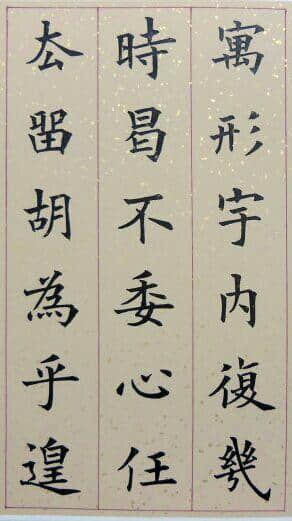 寓形宇内復幾
時曷不委心任
厺留胡為乎遑